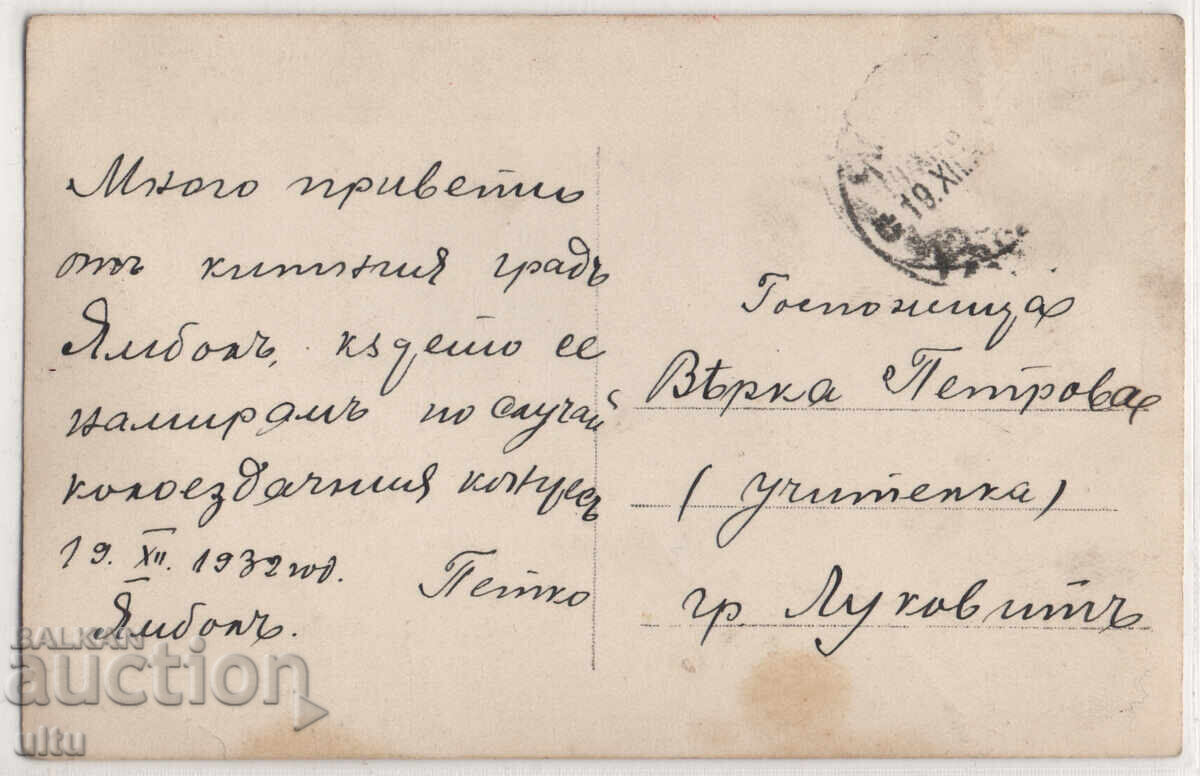 Много привети
отъ китния градъ
Ямболъ, където се
намирамъ по случай
колоездачния конгресъ
19. XII. 1932 год.
Петко
Ямболъ.
19.XII.
Госпожица
Вѣрка Петрова
(учителка)
гр. Луковитъ
BALKAN
auction
ultu